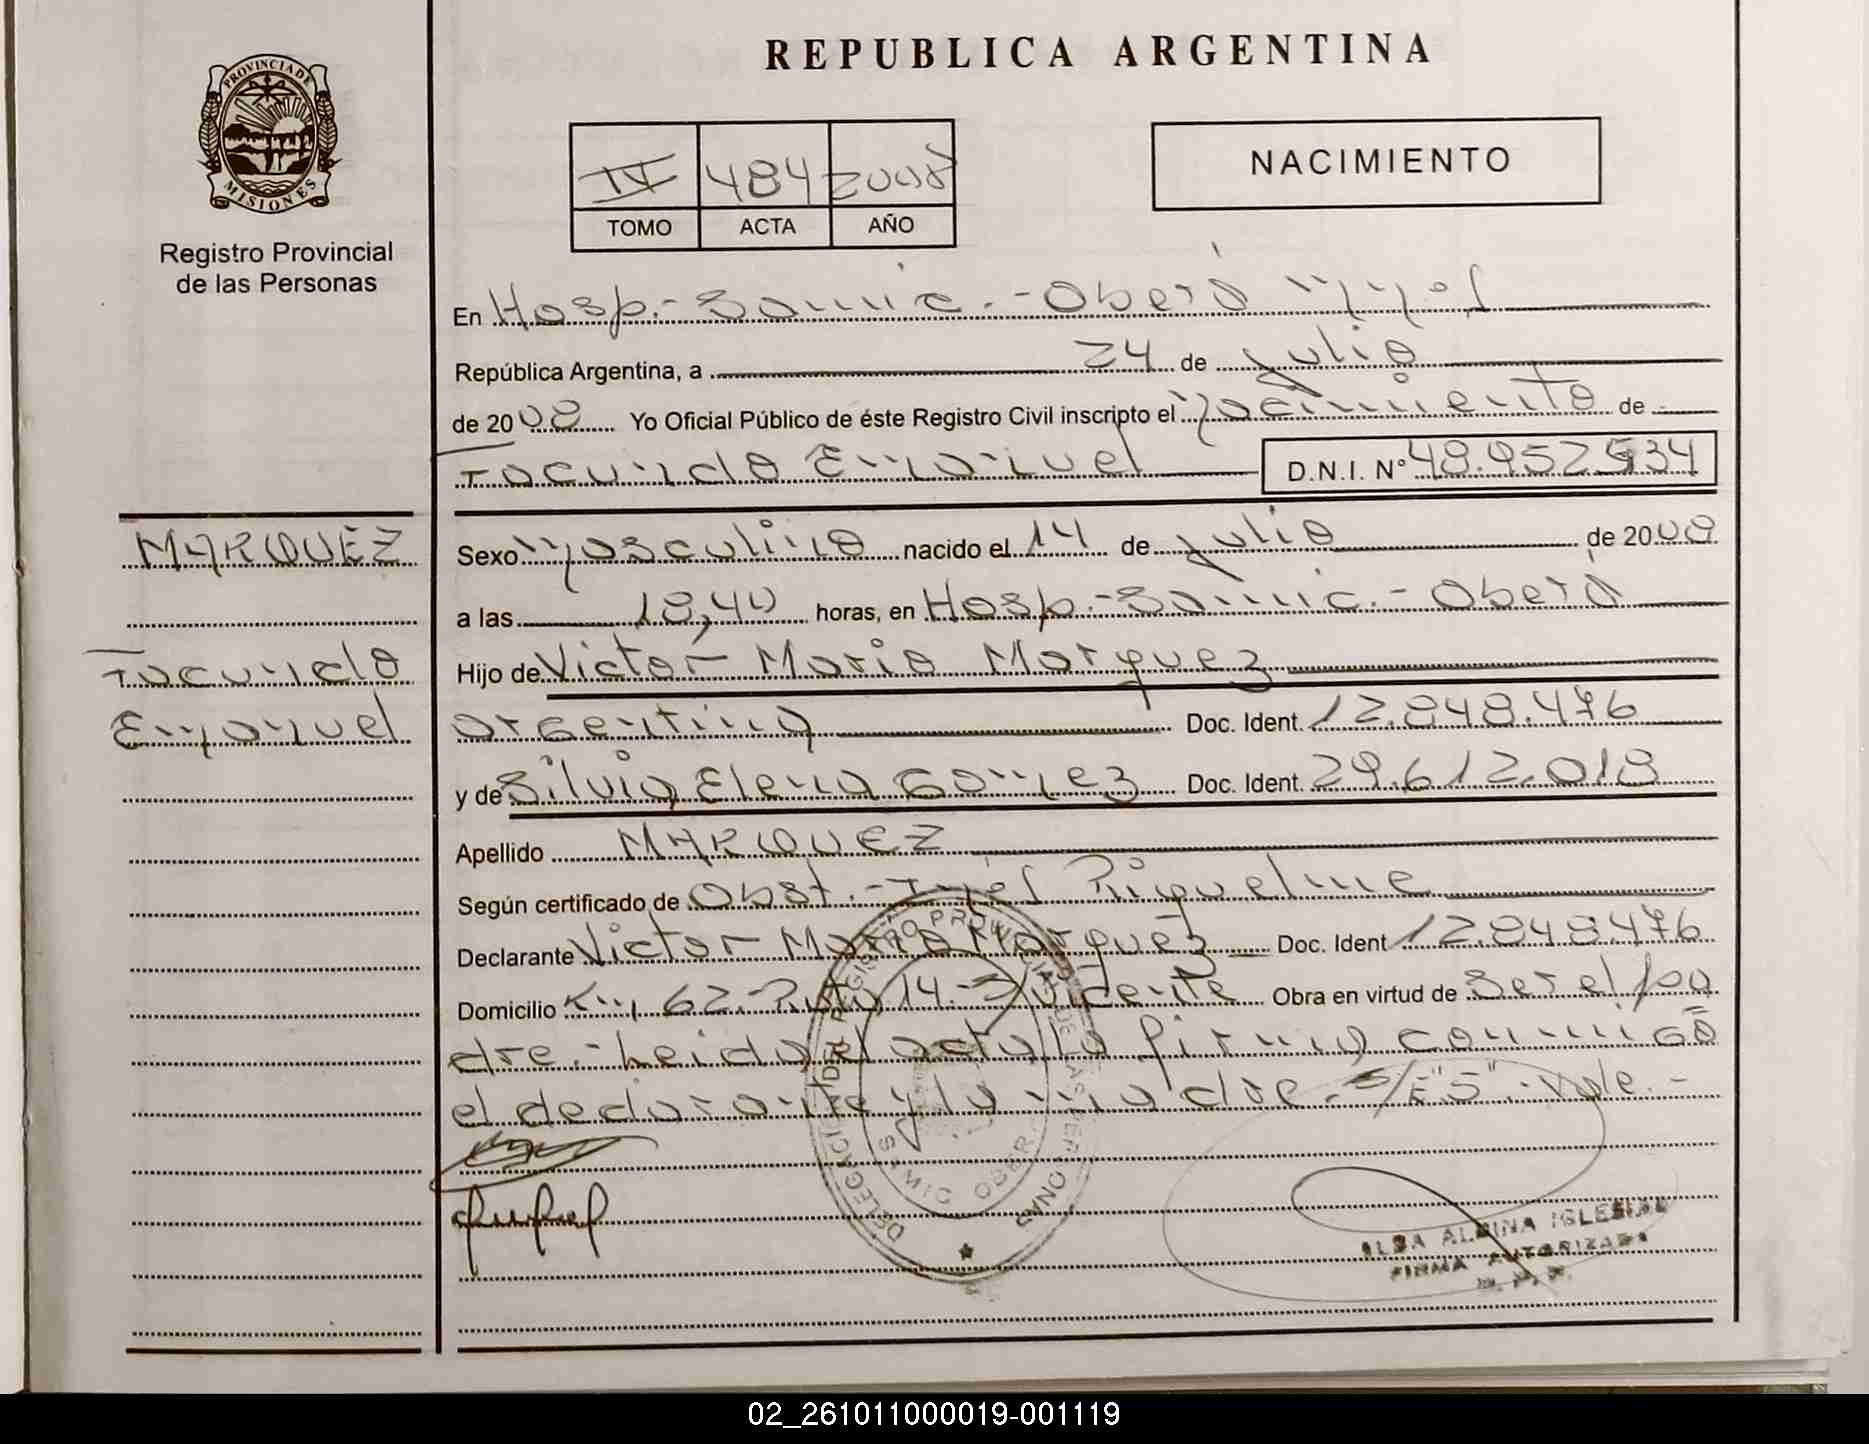 REPUBLICA ARGENTINA
PROVINCIA DE
MISIONES
Registro Provincial
de las Personas
IV 484 2008
TOMO ACTA AÑO
NACIMIENTO
En Hosp.- Samic.- Oberá
República Argentina, a 24 de Julio
de 2008 Yo Oficial Público de éste Registro Civil inscripto el Nacimiento de
Facundo Emanuel D.N.I. Nº 48.952534
MARQUEZ
Sexo Masculino nacido el 14 de Julio de 2008
a las 18,40 horas, en Hosp.- Samic.- Oberá
Facundo
Emanuel
Hijo de Victor Mario Marquez
argentino Doc. Ident. 12.848.476
y de Silvia Elena Gomez Doc. Ident. 29.612.018
Apellido MARQUEZ
Según certificado de Obst.- Riquelme
Declarante Victor Mario Marquez Doc. Ident 12.848476
Domicilio Km 62.- Ruta 14.- S/Vicente Obra en virtud de Ser el pa
dre.- Leida el acta la firma conmigo
el declarante y la madre. S/E "5". Vale.-
DELEGACION DEL REGISTRO PROVINCIAL DE LAS PERSONAS
SAMIC OBERA
ALBINA IGLESIAS
FIRMA AUTORIZADA
02_261011000019-001119